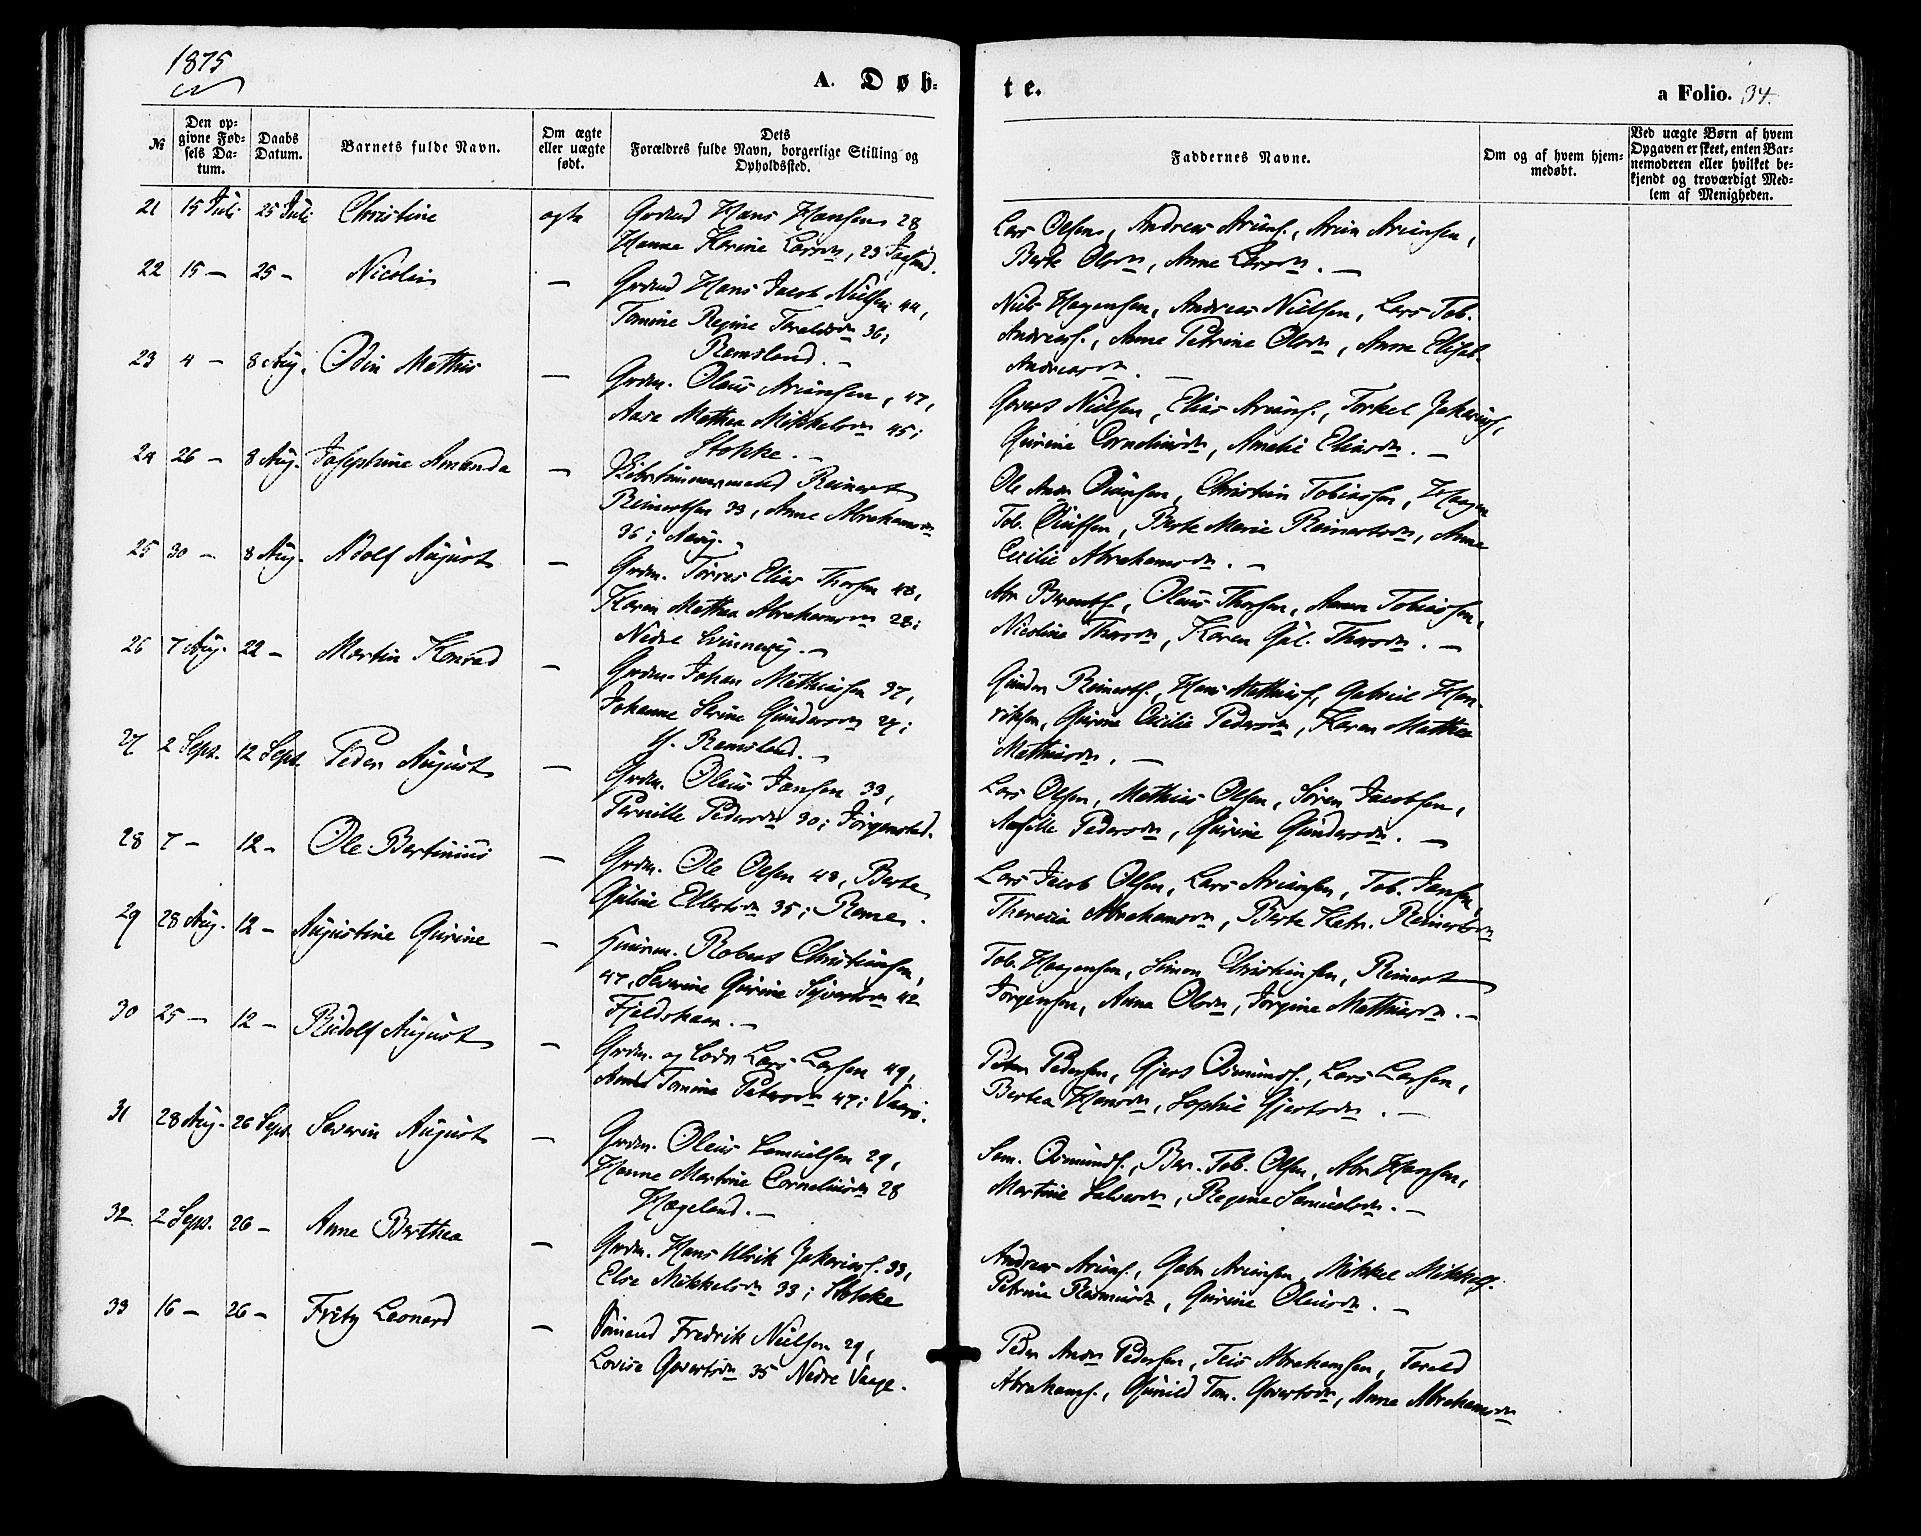 1875
A. Døb-
te.
a Folio. 34.
№
Den op-
givne Fød-
sels Da-
tum.
Daabs
Datum.
Barnets fulde Navn.
Om ægte
eller uægte
født.
Dets
Forældres fulde Navn, borgerlige Stilling og
Opholdssted.
Faddernes Navne.
Om og af hvem hjem-
medøbt.
Ved uægte Børn af hvem
Opgaven er skeet, enten Bar-
nemoderen eller hvilket be-
kjendt og troværdigt Med-
lem af Menigheden.
21 15 Juli 25 Juli Christine ægte Hans Hansen 28
Hanne Karine Larsdn, 23
Lars Olsen, Andreas Ariansf., Arian Ariansen,
Berte Olsdn, Anne Larsdn. —
22 15 — 25 — Nicolai — Hans Jacob Nielsen 44,
Tomine Regine Toraldsdn 36;
Ramsland. —
Niels Haagensen, Andreas Nielsen, Lars Tob.
Andreasf., Anne Petrine Olsdn, Anne Elisab.
Andreasdn. —
23 4 — 8 Aug. Odin Mathis — Grdm. Olaus Ariansen, 47,
Aase Mathea Mikkelsdn 45;
Stokke. —
Govert Nielsen, Elias Ariansf., Torkel Zakariasf.,
Gurine Corneliusdn, Amalie Eliasdn. —
24 26 — 8 Aug. Josephine Amanda — Skibstømmermand Reinert
Reinertsen 33, Anne Abrahamsdn
36; —
Ole Andr. Christian Tobiassen, Haagen
Tob. Berte Marie Reinertsdn, Anne
Cecilie Abrahamsdn. —
25 30 — 8 Aug. Adolf August — Grdm. Tørres Elias Thorsen 48,
Karen Mathea Abrahamsdn 28;
Nedre —
Abr. Berentsf., Olaus Thorsen, Tobiassen,
Nicoline Thorsdn, Karen Gul. Thorsdn. —
26 7 Aug. 22 — Martin Konrad — Grdm. Johan Mathiassen 37,
Johanne Serine Gundersdn 27;
Y. Ramsland. —
Gunder Reinertsf., Hans Mathiasf., Gabriel Hen-
riksen, Gurine Cecilie Pedersdn, Karen Mathea
Mathiasdn. —
27 2 Sept. 12 Sept. Peder August — Grdm. Olaus Jansen 33,
Pernille Pedersdn 30; Jørgenstad.
Lars Olsen, Mathias Olsen, Søren Jacobsen,
Pedersdn, Gurine Gundersdn. —
28 7 — 12 — Ole Bertinius — Grdm. Ole Olsen 48, Berte
Guline Ellertsdn 35; Rame.
Lars Jacob Olsen, Lars Ariansen, Tob. Jansen,
Theresia Abrahamsdn, Berte Katr. Reinertsdn
29 28 Aug. 12 — Augustine Gurine — Robert Christiansen,
47, Severine Gurine Syvertsdn 42
Fjeldskaar. —
Tob. Haagensen, Simon Christiansen, Reinert
Jørgensen, Anna Olsdn, Jørgine Mathiasdn. —
30 25 — 12 — Rudolf August — Grdm. og Lods Lars Larsen 49,
Tomine Petersdn 47;
Peter Pedersen, Gjert Osmundsf., Lars Larsen,
Bertea Hansdn, Sophie Gjertsdn. —
31 28 Aug. 26 Sept. Severin August — Grdm. Olaus Samuelsen 29,
Hanne Martine Corneliusdn 28
Hægeland. —
Sam. Osmundsf., Ber. Tob. Olsen, Abr. Haagsen,
Martine Salvesdn, Regine Samuelsdn. —
32 2 Sept. 26 — Anne Berthea — Grdm. Hans Ulrik Zakariasf. 33,
Else Mikkelsdn 33; Stokke
Andreas Ariansf., Gabr. Ariansen, Mikkel Mikkelsf.
Petrine Rasmusdn, Gurine Olausdn. —
33 16 — 26 — Fritz Leonard — Sømand Fredrik Nielsen 29,
Lovise Govertsdn 35 Nedre Vaage.
Peder Andr. Pedersen, Teis Abrahamsen, Torald
Abrahamsf., Gunild Tom. Govertsdn, Anne Abrahamsdn